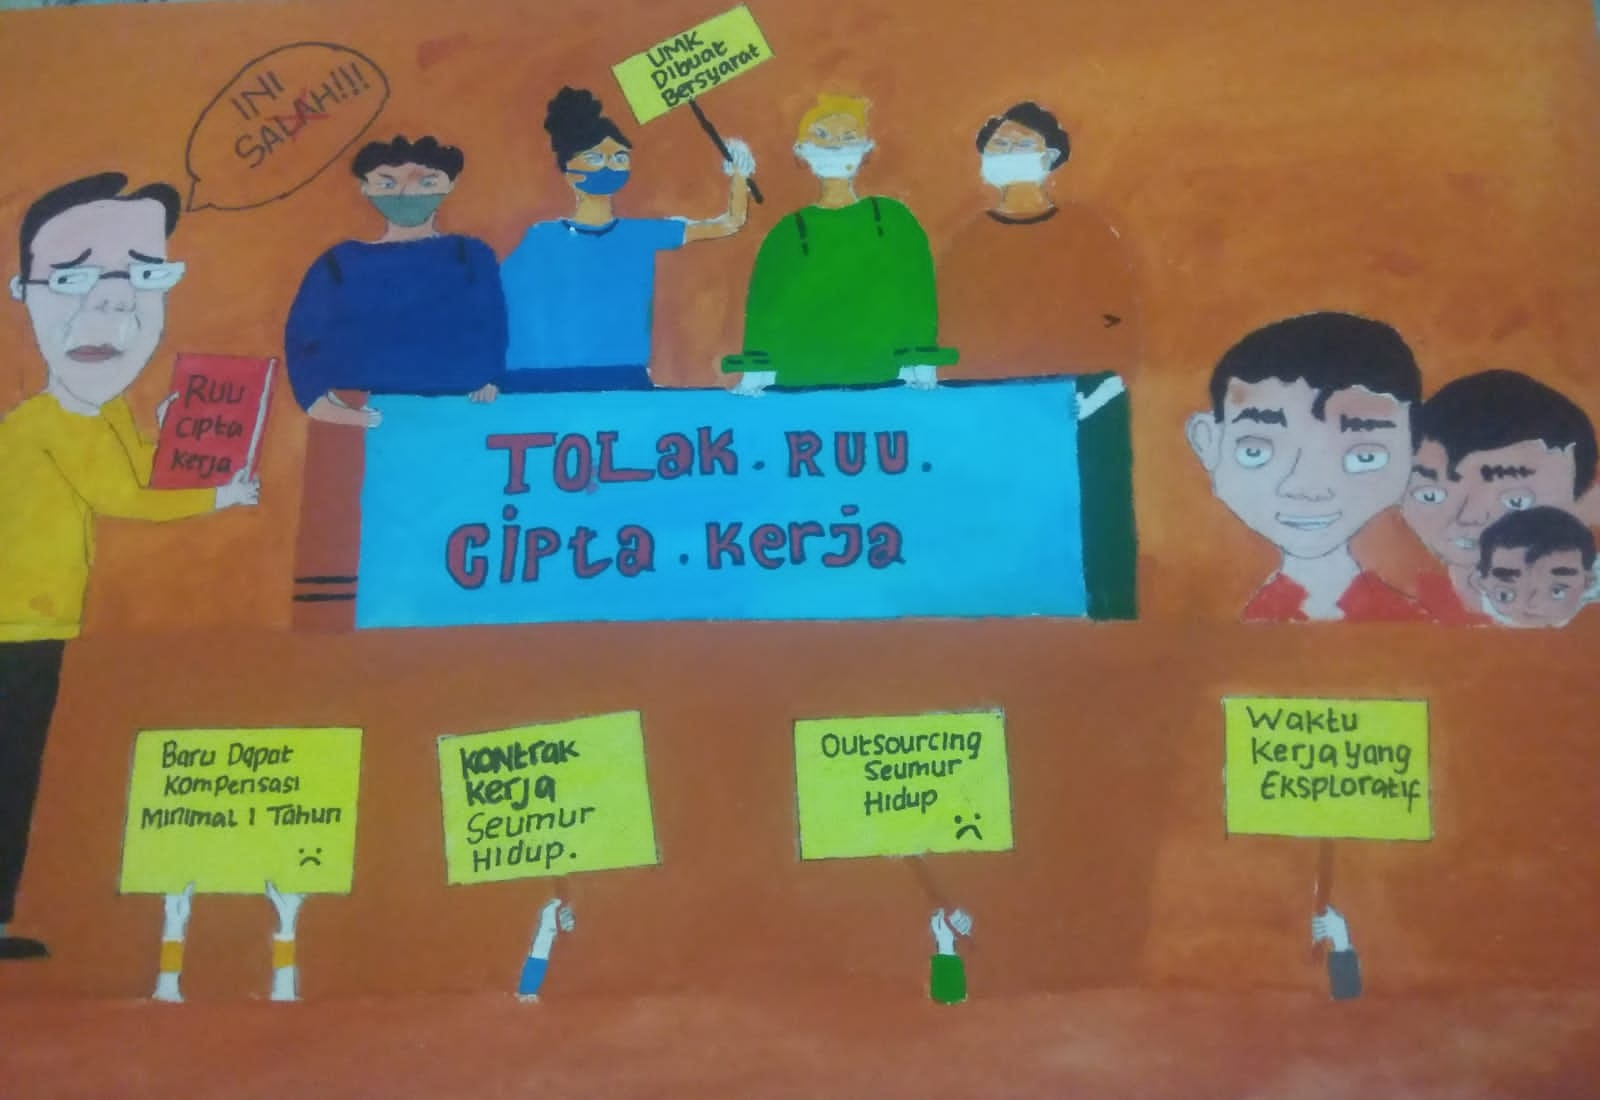 INI
SALAH!!!
UMK
Dibuat
Bersyarat
RUU
Cipta
Kerja
TOLak. RUU.
Cipta. Kerja
Baru Dapat
Kompensasi
Minimal 1 Tahun
Kontrak
Kerja
Seumur
Hidup.
Outsourcing
Seumur
Hidup
Waktu
Kerja yang
Eksploratif